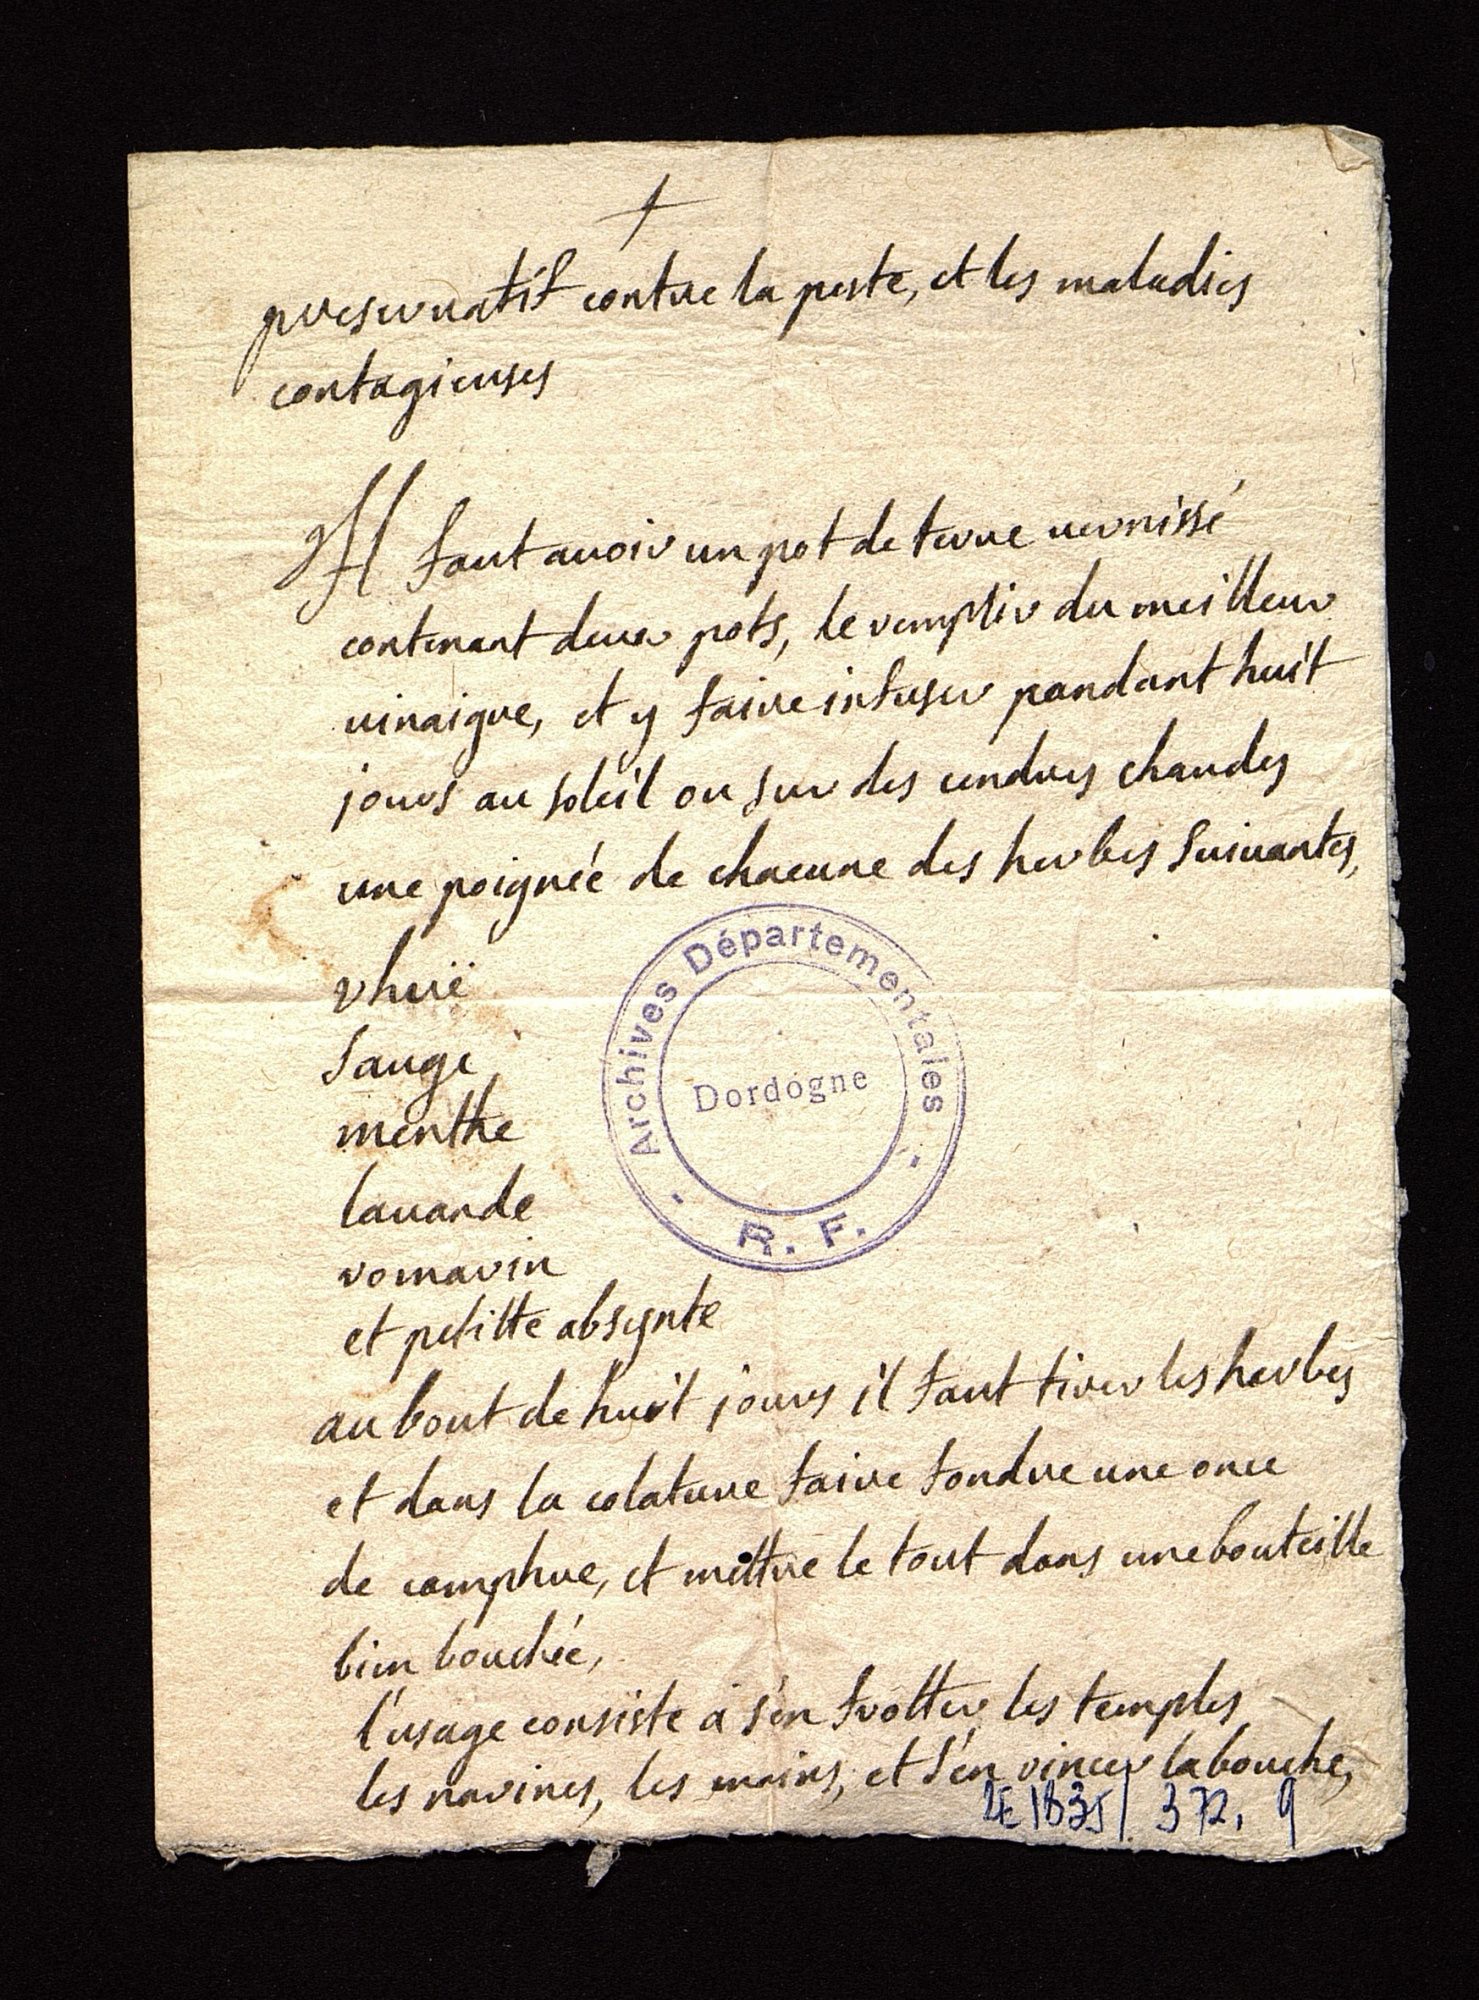 preseruatif contre la peste, et les maladies
contagieuses
Il faut auoir un pot de terre uernissé
contenant deux pots, le remplir du meilleur
uinaigre, et y faire infuser pandant huit
jours au soleil ou sur des cendres chaudes
une poignée de chacune des herbes suiuantes,
rhuë
sauge
menthe
lauande
romarin
et petitte absynte
au bout de huit jours il faut tirer les herbes
et dans la colature faire fondre une once
de camphre, et mettre le tout dans une bouteille
bien bouchée,
l'usage consiste a s'en frotter les temples
les narines, les mains, et s'en rincer la bouche,
Archives Départementales
Dordogne
R. F.
2E 1835/ 372. 9